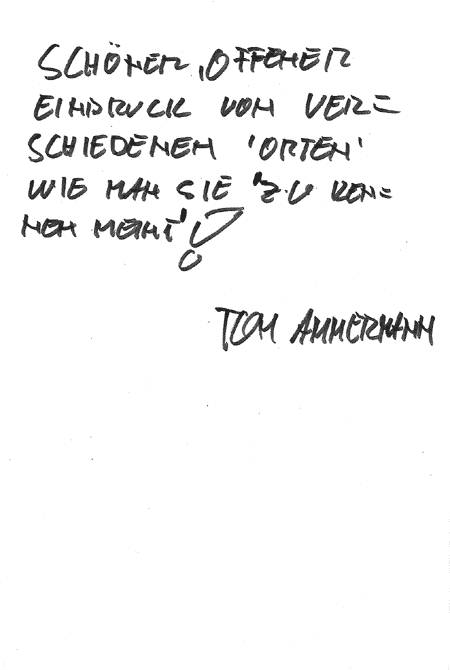 SCHÖNER, OFFENER
EINDRUCK VON VER=
SCHIEDENEN 'ORTEN'
WIE MAN SIE "ZU KEN=
NEN MEINT"!
TOM AMMERMANN